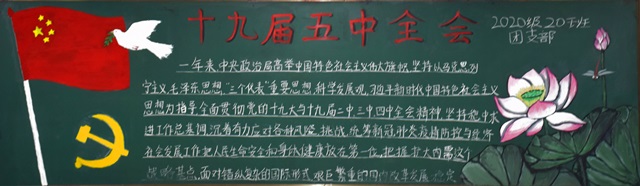 十九届五中全会
2020级20班
团支部
一年来,中央政治局高举中国特色社会主义伟大旗帜,坚持以马克思列
宁主义、毛泽东思想、“三个代表”重要思想、科学发展观、习近平新时代中国特色社会主义
思想为指导,全面贯彻党的十九大与十九届二中三中四中全会精神,坚持稳中求
进工作总基调,沉着有力应对各种风险挑战,统筹新冠肺炎疫情防控与经济
社会发展工作,把人民生命安全和身体健康放在第一位,把握扩大内需这个
战略基点,面对错综复杂的国际形式、艰巨繁重的国内改革发展